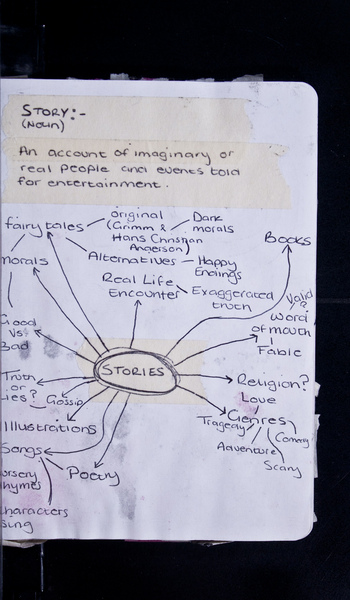 STORY:-
(NOUN)
An account of imaginary or
real people and events told
for entertainment.
fairytales
original
(Grimm &
Hans Christian
Anderson)
Dark
morals
Alternatives - Happy
Endings
Books
morals
Real Life
Encounter
Exaggerated
truth
Valid
?
Word
of mouth
Fable
Good
vs.
Bad
STORIES
Truth
or
lies?
Gossip
Religion?
Love
Genres
Tragedy
Comedy
Adventure
Scary
Illustrations
Songs
Poetry
ursery
hymes
characters
sing